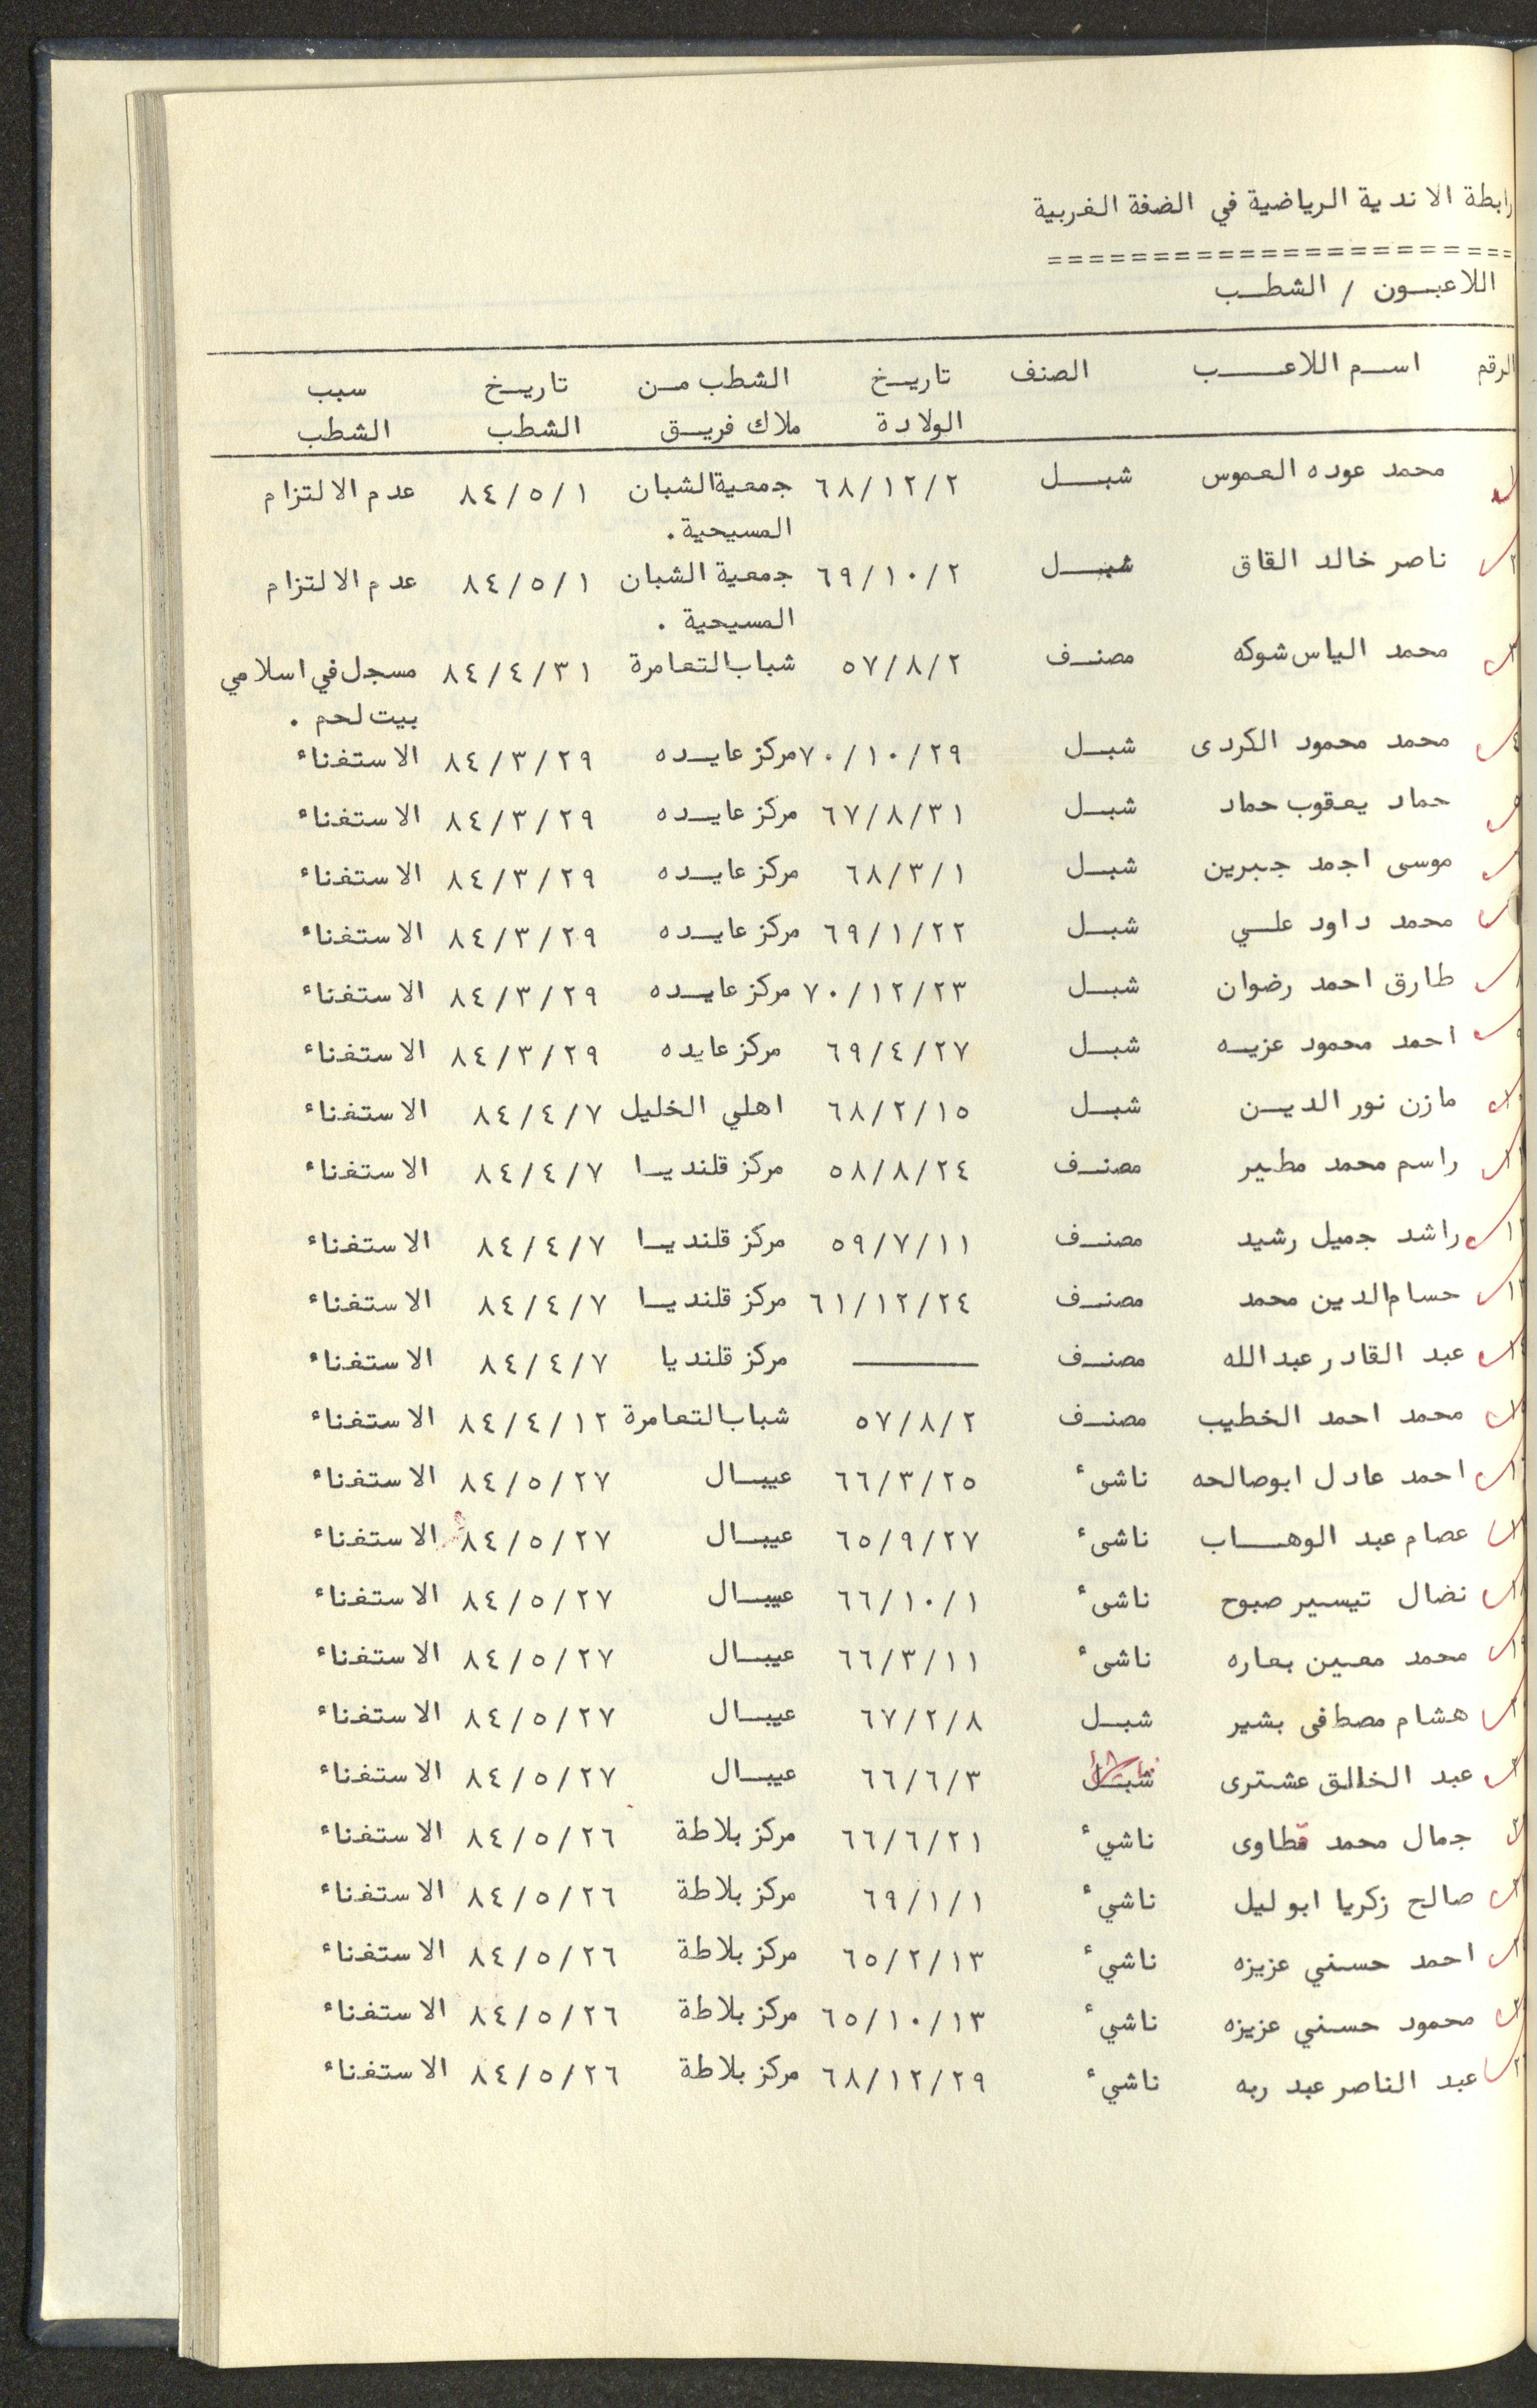 رابطة الاندية الرياضية في الضفة الغربية
=======================
اللاعبون / الشطب
الرقم اسم اللاعب الصنف تاريخ الشطب من تاريخ سبب
الولادة ملاك فريق الشطب الشطب
١ محمد عوده العموس شبل ٦٨/١٢/٢ جمعية الشبان ٨٤/٥/١ عدم الالتزام
المسيحية .
٢ ناصر خالد القاق شبل ٦٩/١٠/٢ جمعية الشبان ٨٤/٥/١ عدم الالتزام
المسيحية .
٣ محمد الياس شوكه مصنف ٥٧/٨/٢ شباب التعامرة ٨٤/٤/٣١ مسجل في اسلامي
بيت لحم .
٤ محمد محمود الكردى شبل ٧٠/١٠/٢٩ مركز عايده ٨٤/٣/٢٩ الاستغناء
٥ حماد يعقوب حماد شبل ٦٧/٨/٣١ مركز عايده ٨٤/٣/٢٩ الاستغناء
موسى اجمد جبرين شبل ٦٨/٣/١ مركز عايده ٨٤/٣/٢٩ الاستغناء
محمد داود علي شبل ٦٩/١/٢٢ مركز عايده ٨٤/٣/٢٩ الاستغناء
طارق احمد رضوان شبل ٧٠/١٢/٢٣ مركز عايده ٨٤/٣/٢٩ الاستغناء
احمد محمود عزيه شبل ٦٩/٤/٢٧ مركز عايده ٨٤/٣/٢٩ الاستغناء
مازن نور الدين شبل ٦٨/٢/١٥ اهلي الخليل ٨٤/٤/٧ الاستغناء
راسم محمد مطير مصنف ٥٨/٨/٢٤ مركز قلنديا ٨٤/٤/٧ الاستغناء
راشد جميل رشيد مصنف ٥٩/٧/١١ مركز قلنديا ٨٤/٤/٧ الاستغناء
حسام الدين محمد مصنف ٦١/١٢/٢٤ مركز قلنديا ٨٤/٤/٧ الاستغناء
عبد القادر عبد الله مصنف ـــــــ مركز قلنديا ٨٤/٤/٧ الاستغناء
محمد احمد الخطيب مصنف ٥٧/٨/٢ شباب التعامرة ٨٤/٤/١٢ الاستغناء
احمد عادل ابوصالحه ناشىء ٦٦/٣/٢٥ عيبال ٨٤/٥/٢٧ الاستغناء
عصام عبد الوهاب ناشىء ٦٥/٩/٢٧ عيبال ٨٤/٥/٢٧ الاستغناء
نضال تيسير صبوح ناشىء ٦٦/١٠/١ عيبال ٨٤/٥/٢٧ الاستغناء
محمد معين بعاره ناشىء ٦٦/٣/١١ عيبال ٨٤/٥/٢٧ الاستغناء
هشام مصطفى بشير شبل ٦٧/٢/٨ عيبال ٨٤/٥/٢٧ الاستغناء
عبد الخالق عشترى شبل ٦٦/٦/٣ عيبال ٨٤/٥/٢٧ الاستغناء
جمال محمد قطاوى ناشيء ٦٦/٦/٢١ مركز بلاطة ٨٤/٥/٢٦ الاستغناء
صالح زكريا ابو ليل ناشيء ٦٩/١/١ مركز بلاطة ٨٤/٥/٢٦ الاستغناء
احمد حسني عزيزه ناشيء ٦٥/٢/١٣ مركز بلاطة ٨٤/٥/٢٦ الاستغناء
محمود حسني عزيزه ناشيء ٦٥/١٠/١٣ مركز بلاطة ٨٤/٥/٢٦ الاستغناء
عبد الناصر عبد ربه ناشيء ٦٨/١٢/٢٩ مركز بلاطة ٨٤/٥/٢٦ الاستغناء